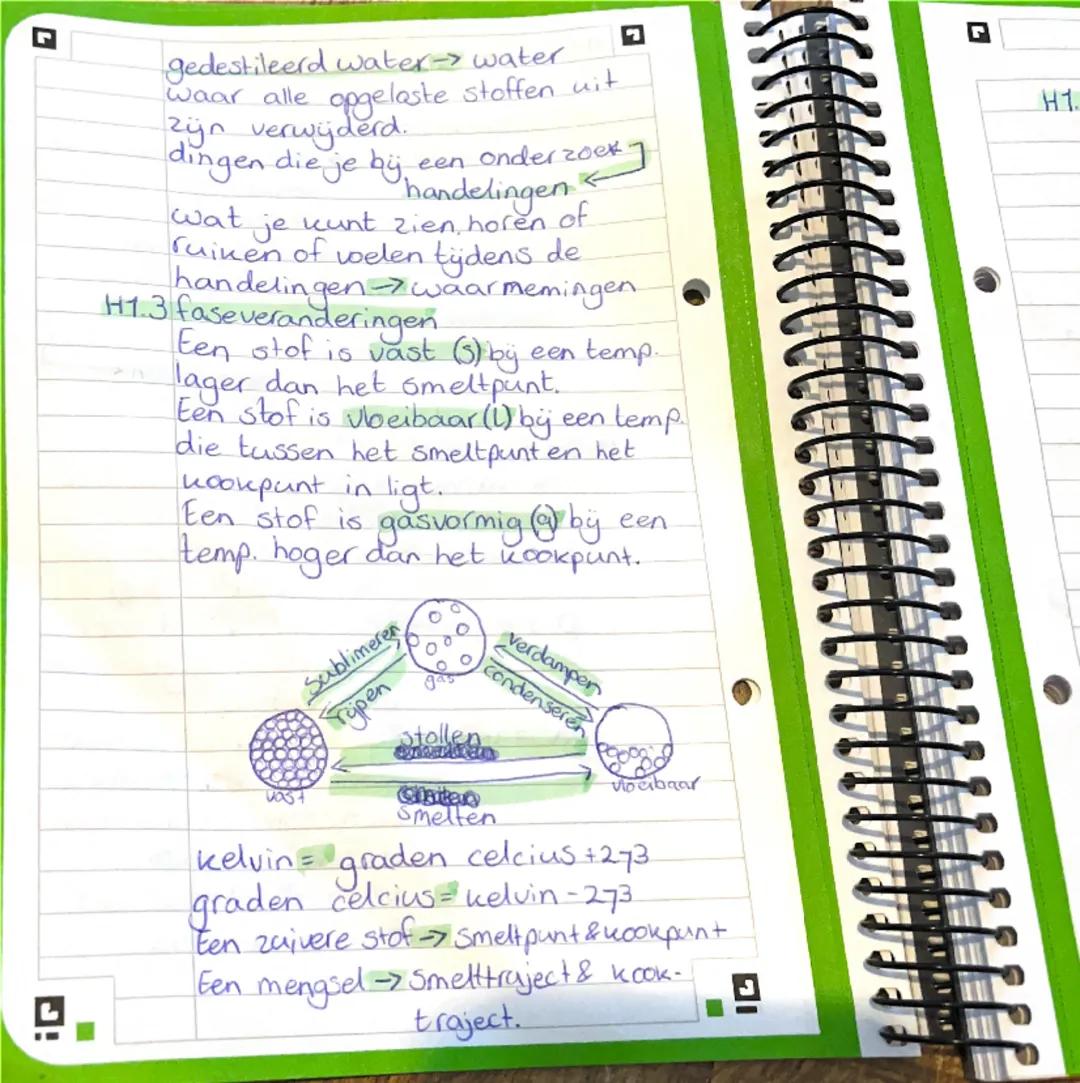 gedestileerd water → water
waar alle opgeloste stoffen uit
zijn verwijderd.
dingen die je bij een onderzoek
handelingen ←
wat je kunt zien, horen of
ruiken of voelen tijdens de
handelingen → waarmemingen
H1.3 faseveranderingen
Een stof is vast (s) bij een temp.
lager dan het smeltpunt.
Een stof is vloeibaar (l) bij een temp.
die tussen het smeltpunt en het
kookpunt in ligt.
Een stof is gasvormig (g) bij een
temp. hoger dan het kookpunt.
sublimeren
rijpen
gas
verdampen
condenseren
stollen
vast
vloeibaar
smelten
kelvin = graden celcius + 273
graden celcius = kelvin - 273
Een zuivere stof → smeltpunt & kookpunt
Een mengsel → smelttraject & kook-
traject.
H1.